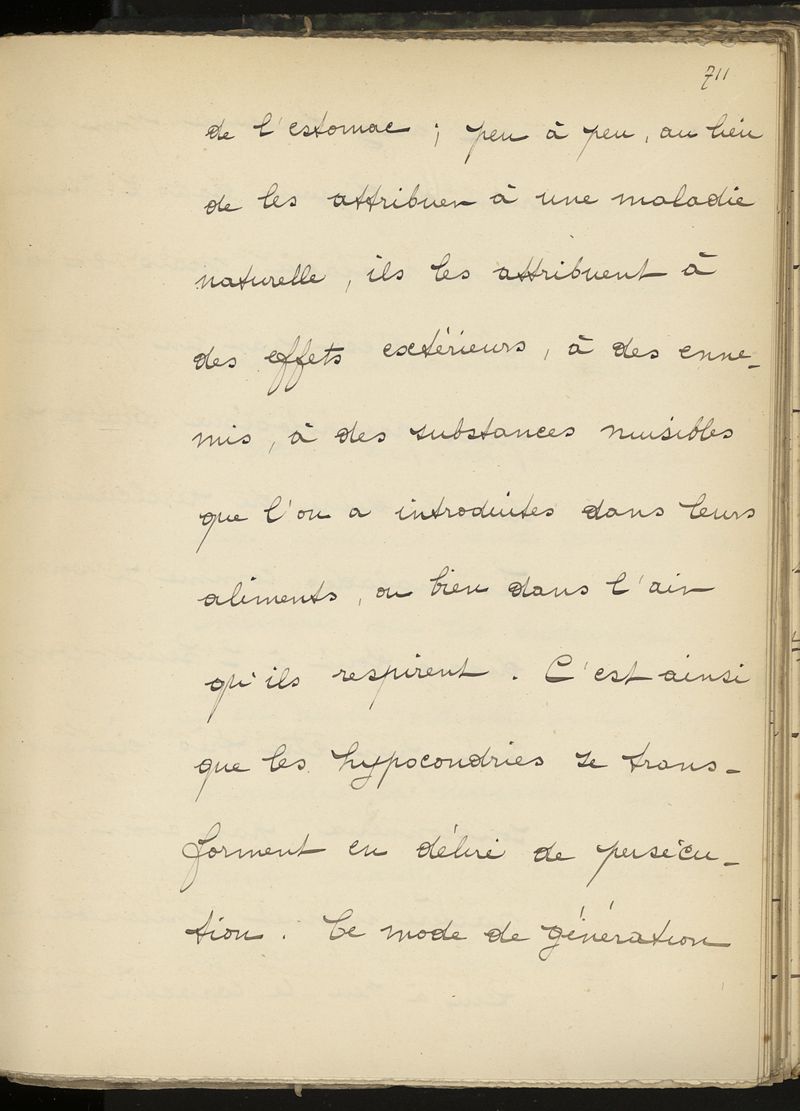 711
de l'estomac ; peu à peu, au lieu
de les attribuer à une maladie
naturelle, ils les attribuent à
des effets extérieurs, à des enne-
mis, à des substances nuisibles
que l'on a introduites dans leurs
aliments, ou bien dans l'air
qu'ils respirent. C'est ainsi
que les hypocondries se trans-
forment en délire de persécu-
tion. Ce mode de génération